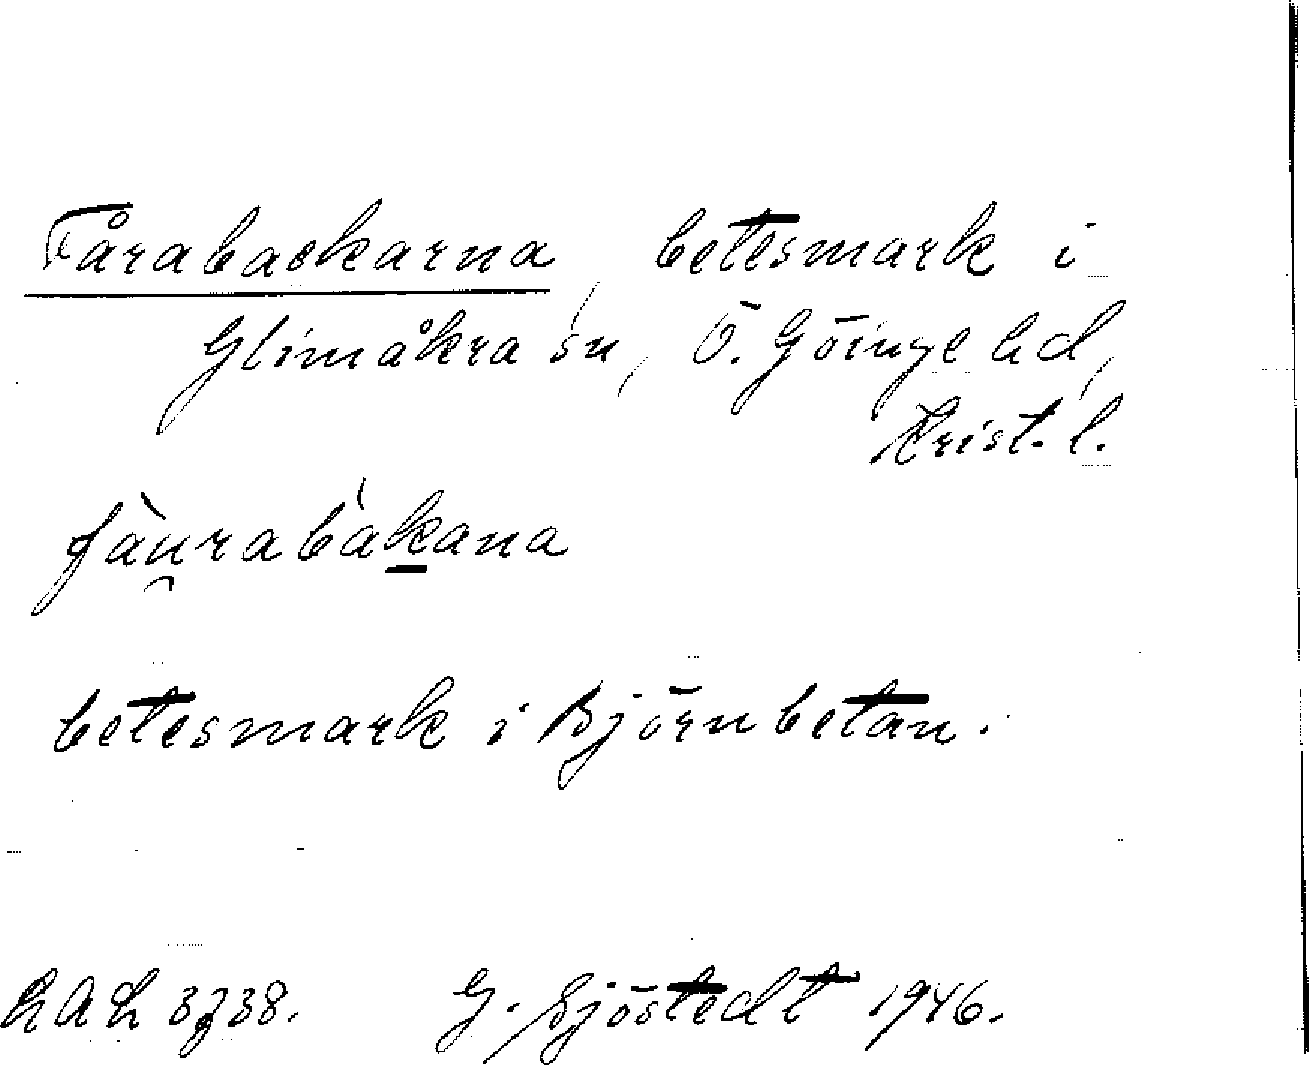 Fårabackarna, betesmark i
Glimåkra sn, Ö. Göinge hd,
Krist. l.
fàu̯rabákana
betesmark i Björnbetan.
LAL 3738. G. Sjöstedt 1946.